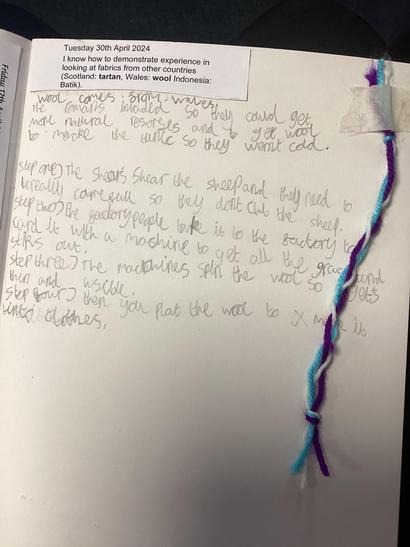 Tuesday 30th April 2024
I know how to demonstrate experience in
looking at fabrics from other countries
(Scotland: tartan, Wales: wool Indonesia:
Batik).
Friday 12th
wool comes from wales,
The romans invaded so they could get
more natural and to get wool
to make the so they went cold.
step one) The shears shear the sheep and they need to
be really so they dont the sheep.
step two) the factory people take it to the factory to
card it with a machine to get all the and
out.
step three) The machines spin the wool so gets
thin and
step four) then you plat the wool to X it
into clothes,